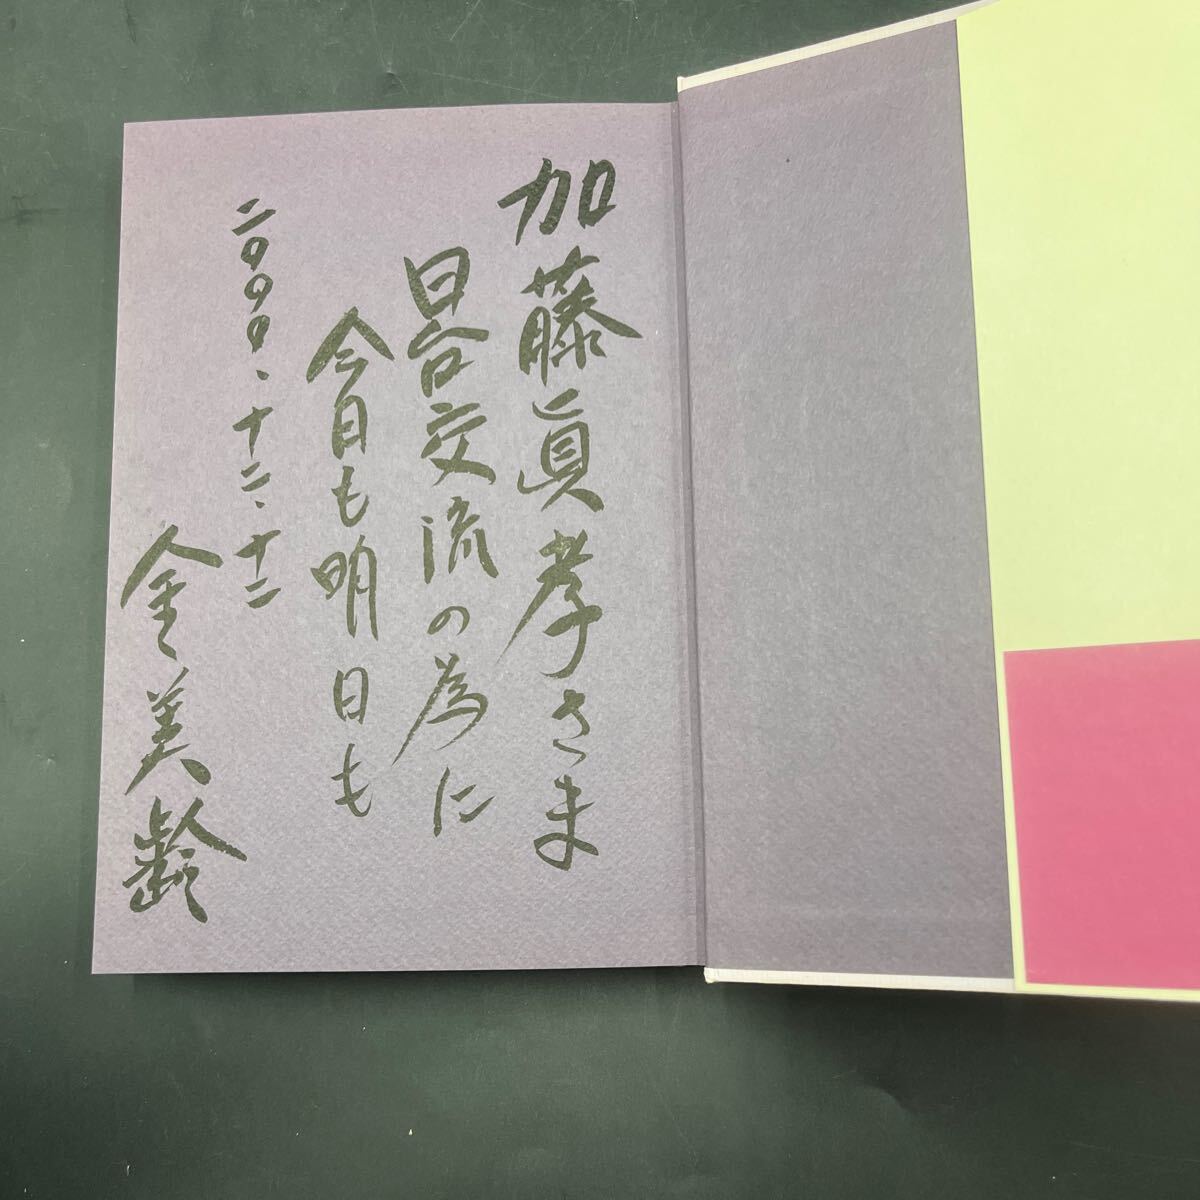 加藤眞孝さま
日台交流の為に
今日も明日も
二〇〇〇、十二、十二
金美齢